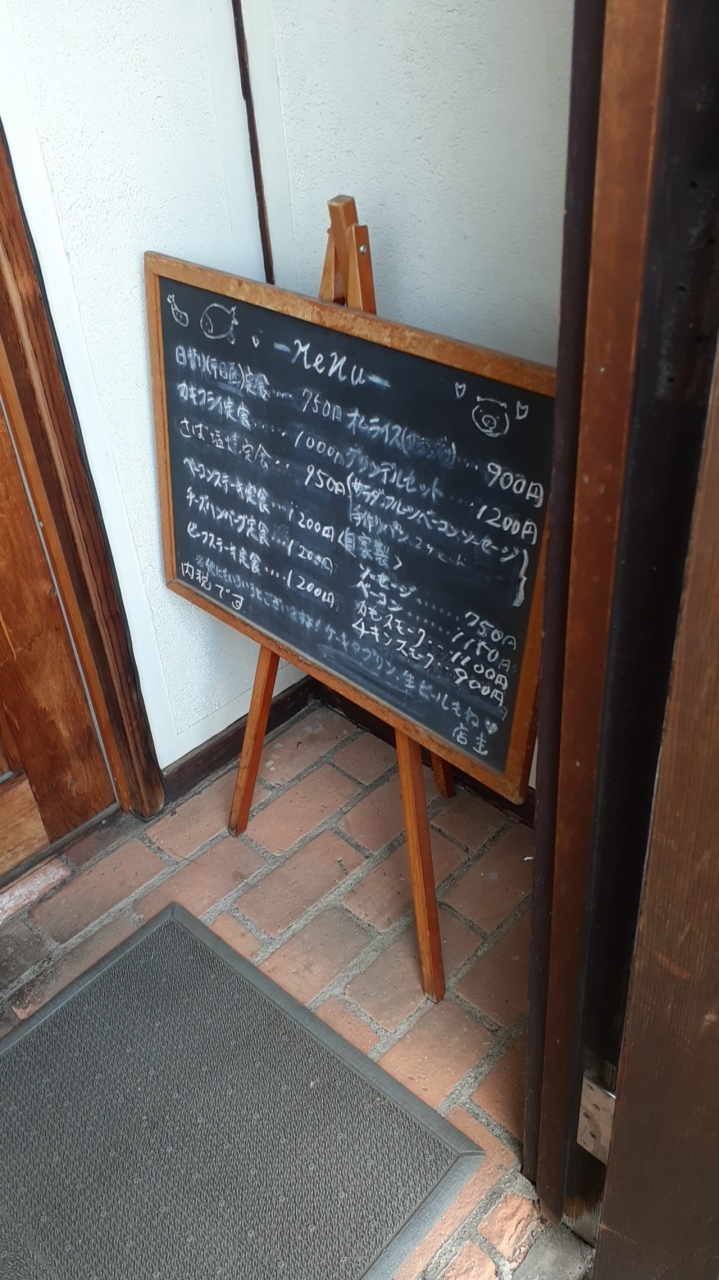 MeNu
日替り(平日昼)定食.... 750円
カキフライ定食..... 1000円
さば塩焼定食.. 950円
ベーコンステーキ定食...1200円
チーズハンバーグ定食...1200円
ビーフステーキ定食....1200円
オムライス(サラダ付)... 900円
グリンデルセット.... 1200円
(サラダ.フルーツ.ベーコン.ソーセージ
手作りパン,
<自家製>
ソーセージ........750円
ベーコン........1150円
カモスモーク...1100円
チキンスモーク...900円
※他にもいろいろとございますよ!ケーキやプリン.生ビールもね♡
内税です
店主